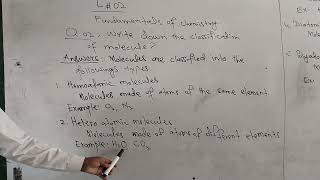 L#02
Fundamentals of chemistry
Q.02. Write down the classification
of molecule?
Answer: Molecules are classified into the
followings types.
1. Homoatomic molecules
Molecules made of atoms of the same element.
Example: O₂, N₂
2. Hetero atomic molecules
Molecules made of atoms of different elements
Example: H₂O, CO₂
Ex-
c. Diatomic
Mol
Ex-